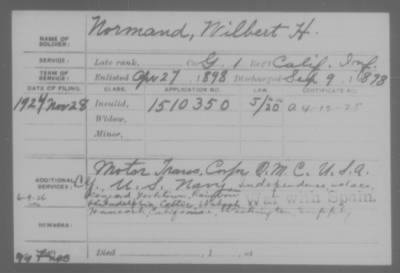 NAME OF SOLDIER: Normand, Wilbert H.
SERVICE: Late rank, Co. G. 1 Reg't Calif. Inf.
TERM OF SERVICE: Enlisted Apr 27, 1898 Discharged Sep. 9, 1898
DATE OF FILING. CLASS. APPLICATION NO. LAW. CERTIFICATE NO.
1924 Nov 28 Invalid, 1510350 5/20 A 4-12-25
Widow,
Minor,
ADDITIONAL SERVICES: Motor Trans. Corps Q.M.C. U.S.A.
Cy. U.S. Navy Independence
Concord Yorktown
6-9-26 Philadelphia Celtic Wabash War with Spain.
Hancock, California, Washington
REMARKS:
Died , 1 , at